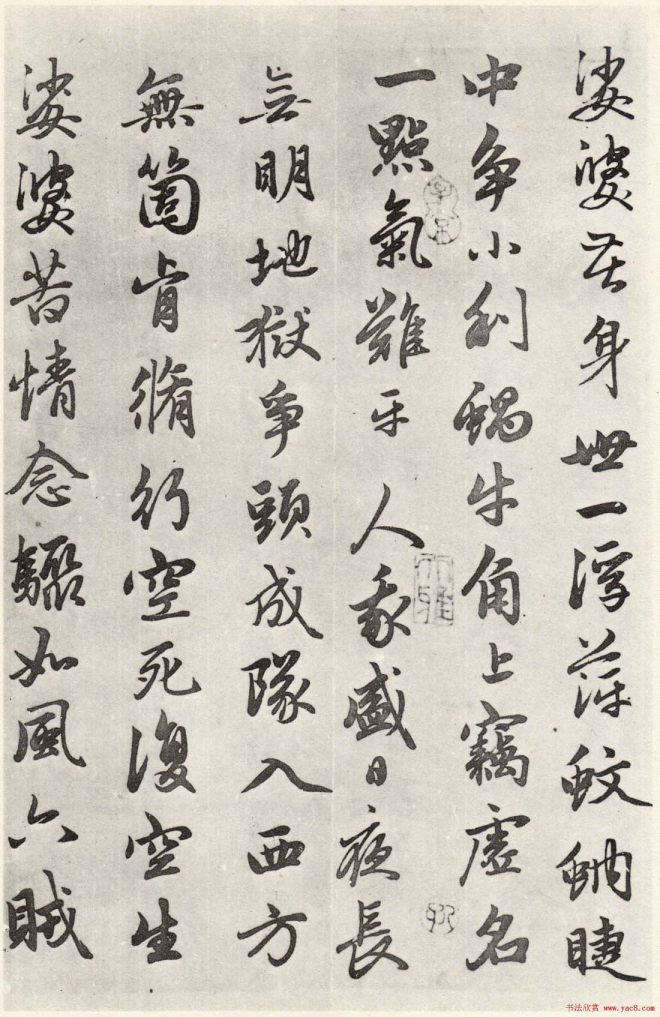 娑婆苦身世一浮萍蚊蚋睫
中争小利蝸牛角上竊虛名
一點氣難平人我盛日夜長
無明地獄爭頭成隊入西方
無箇肯脩行空死復空生
娑婆苦情念驟如風六賊
书法欣赏 www.yac8.com